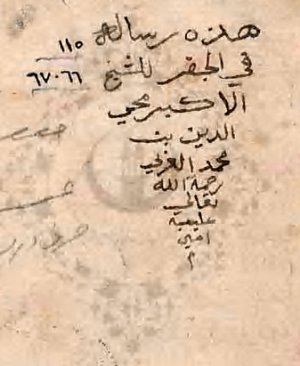 هذه رسالة ١١٥
في الجفر للشيخ ٦٦-٦٧
الاكبر محي
الدين بن
محمد العربي
رحمة الله
تعالى
عليه
امين
م